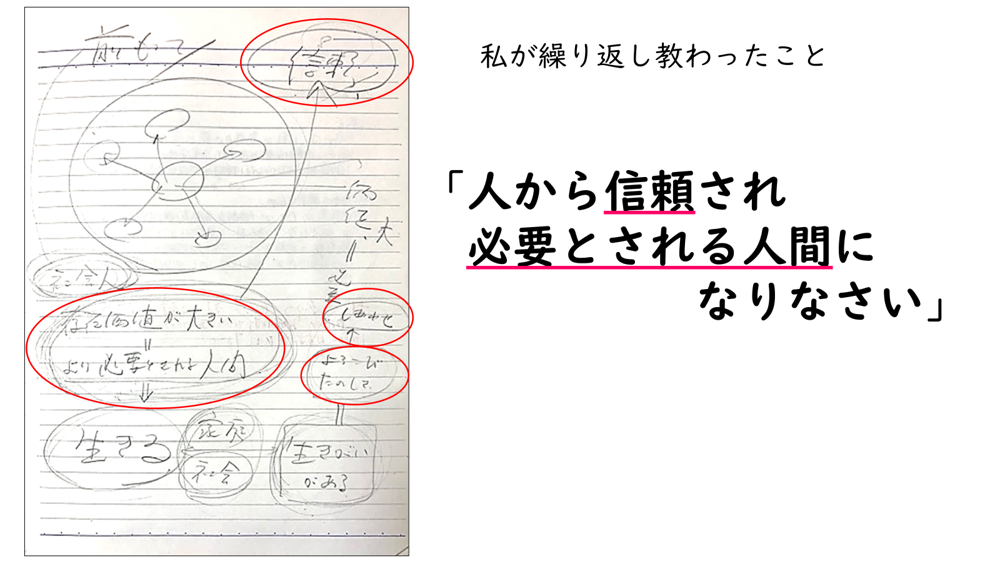 私が繰り返し教わったこと
「人から信頼され
必要とされる人間に
なりなさい」
前もって
信頼
価値大
=
必要
社会人
存在価値が大きい
=
より必要とされる人間
しあわせ
よろこび
たのしさ
生きる
家庭
社会
生きがい
がある